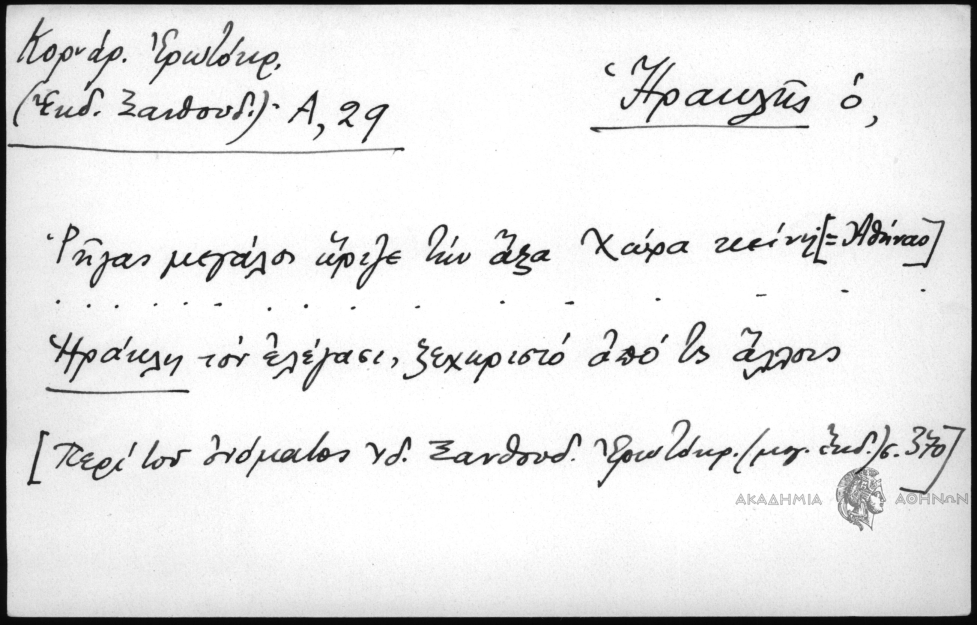 Κορνάρ. Ἐρωτόκρ.
(Ἐκδ. Ξανθουδ.)· Α, 29
Ἡρακλῆς ὁ,
Ῥήγας μεγάλος ὥριζε τὴν ἄξα χώρα κείνη [= Ἀθήνας]
Ἡράκλη τὸν ἐλέγασι, ξεχωριστό ἀπό τς ἄλλους
[Περὶ τοῦ ὀνόματος ἰδ. Ξανθουδ. Ἐρωτόκρ. (μγ. ἐκδ.) σ. 370]
ΑΚΑΔΗΜΙΑ ΑΘΗΝΩΝ